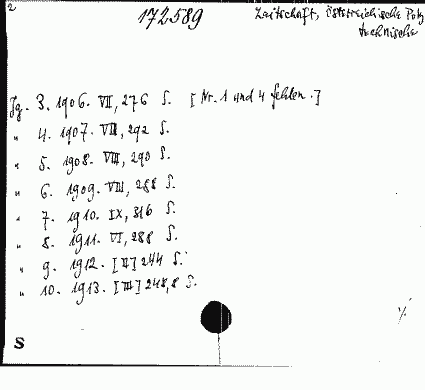 2
172589 Zeitschrift, österreichische Poly
technische
Jg. 3. 1906. VII, 276 S. [Nr. 1 und 4 fehlen.]
" 4. 1907. VIII, 292 S.
" 5. 1908. VIII, 290 S.
" 6. 1909. VIII, 288 S.
" 7. 1910. IX, 316 S.
" 8. 1911. VI, 288 S.
" 9. 1912. [II] 244 S.
" 10. 1913. [III] 248,8 S.
S